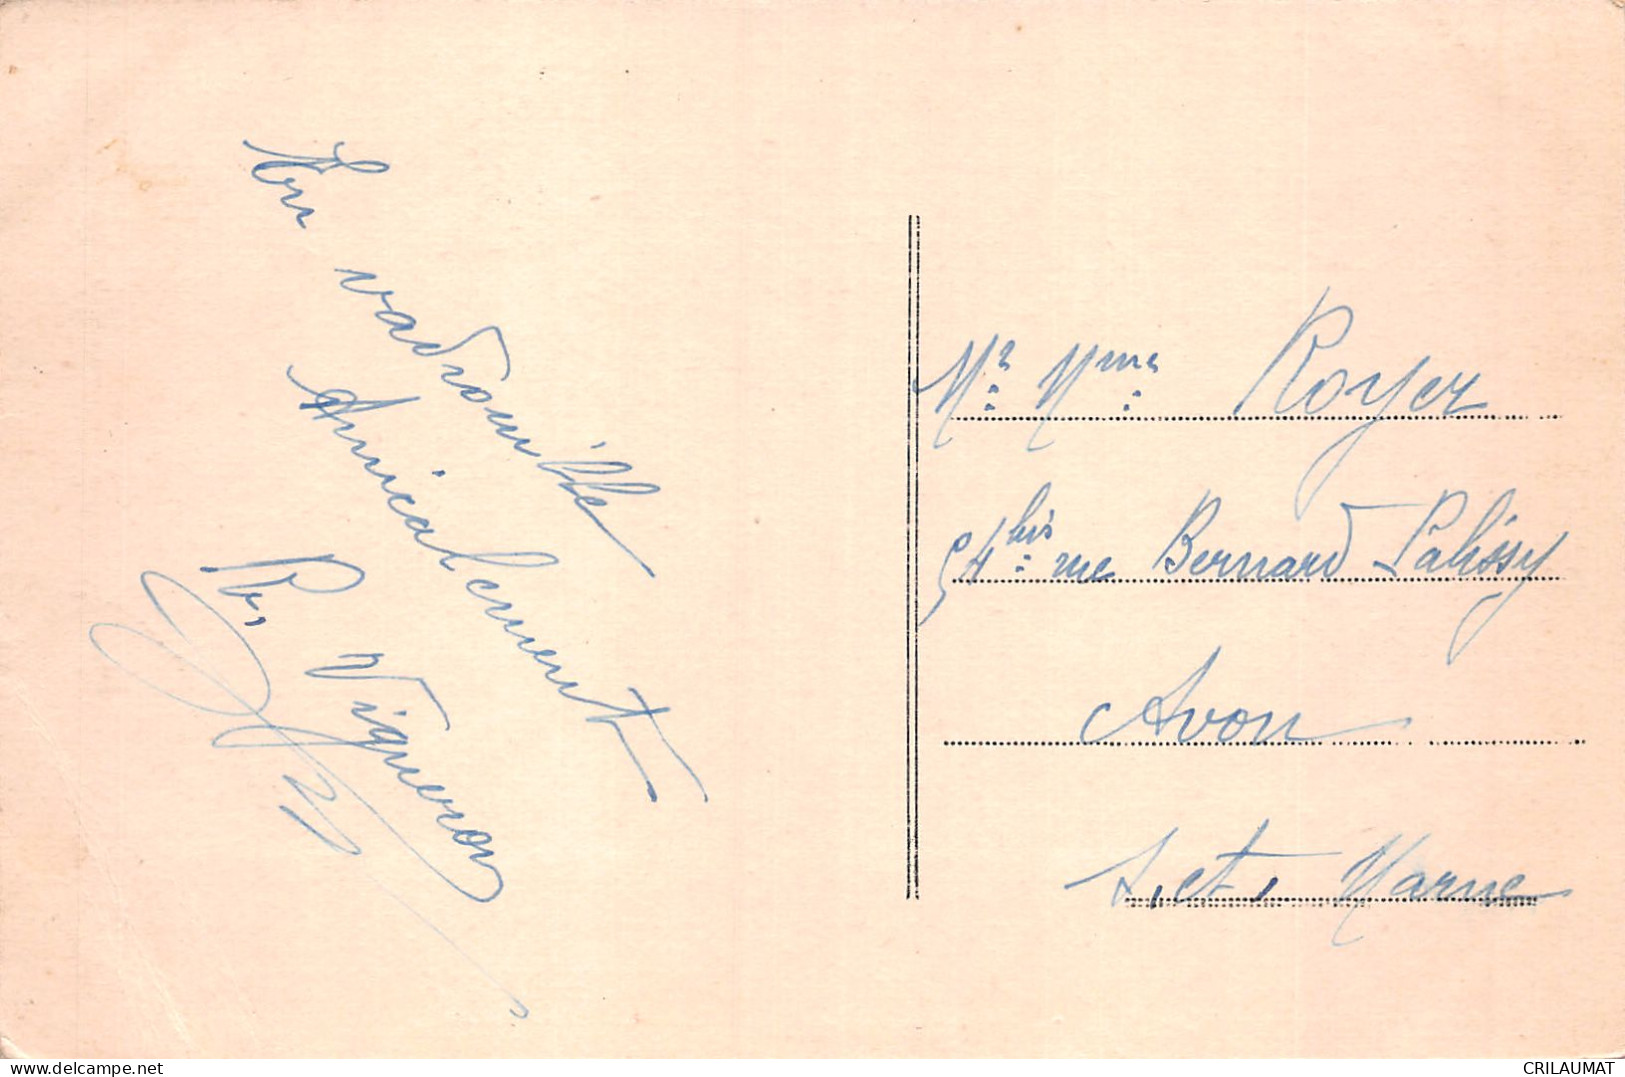 En vadrouille
Amicalement
R. Vigneron
Mr. Mme. Royer
54 bis. rue Bernard Palissy
Avon
S. et. Marne
delcampe.net
CRILAUMAT